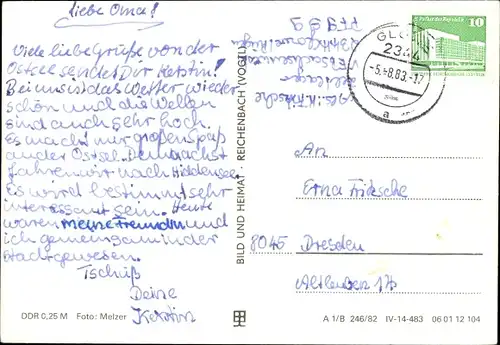 Liebe Oma!
Viele liebe Grüße von der
Ostsee sendet Dir Kerstin!
Bei uns ist das Wetter wieder
schön und die Wellen
sind auch sehr hoch.
Es macht mir großen Spaß
an der Ostsee. Demnächst
fahren wir nach Hiddensee.
Es wird bestimmt sehr
interessant sein. Heute
waren meine Freundin und
ich gemeinsam in der
Stadt gewesen.
Tschüß
Deine
Kerstin
DDR 0,25 M Foto: Melzer
BILD UND HEIMAT · REICHENBACH (VOGTL)
Abs.: K. Fritsche
10
-5.-8.83-17
a
An
Erna Fritsche
8045 Dresden
Altleuben 17b
A 1/B 246/82 IV-14-483 06 01 12 104